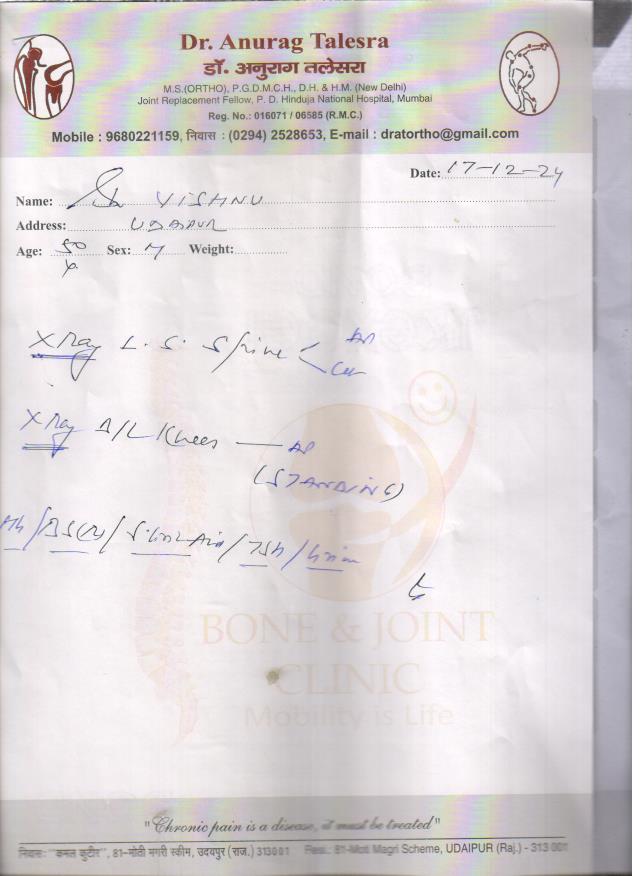 Dr. Anurag Talesra
डॉ. अनुराग तलेसरा
M.S.(ORTHO), P.G.D.M.C.H., D.H. & H.M. (New Delhi)
Joint Replacement Fellow, P. D. Hinduja National Hospital, Mumbai
Reg. No.: 016071 / 06585 (R.M.C.)
Mobile : 9680221159, निवास : (0294) 2528653, E-mail : dratortho@gmail.com
Date: 17-12-24
Name: Sh VISHNU
Address: UDAIPUR
Age: 50 Sex: M Weight:
X Ray L. S. Spine < AP
X Ray B/L Knees — AP
(STANDING)
Hb / BS(R) / S. Uric Acid / TSH / Urine
BONE & JOINT
CLINIC
Mobility is Life
"Chronic pain is a disease, it must be treated"
निवासः "कमल कुटीर", 81-मोती मगरी स्कीम, उदयपुर (राज.) 313001 Resi.: 81-Moti Magri Scheme, UDAIPUR (Raj.) - 313 001